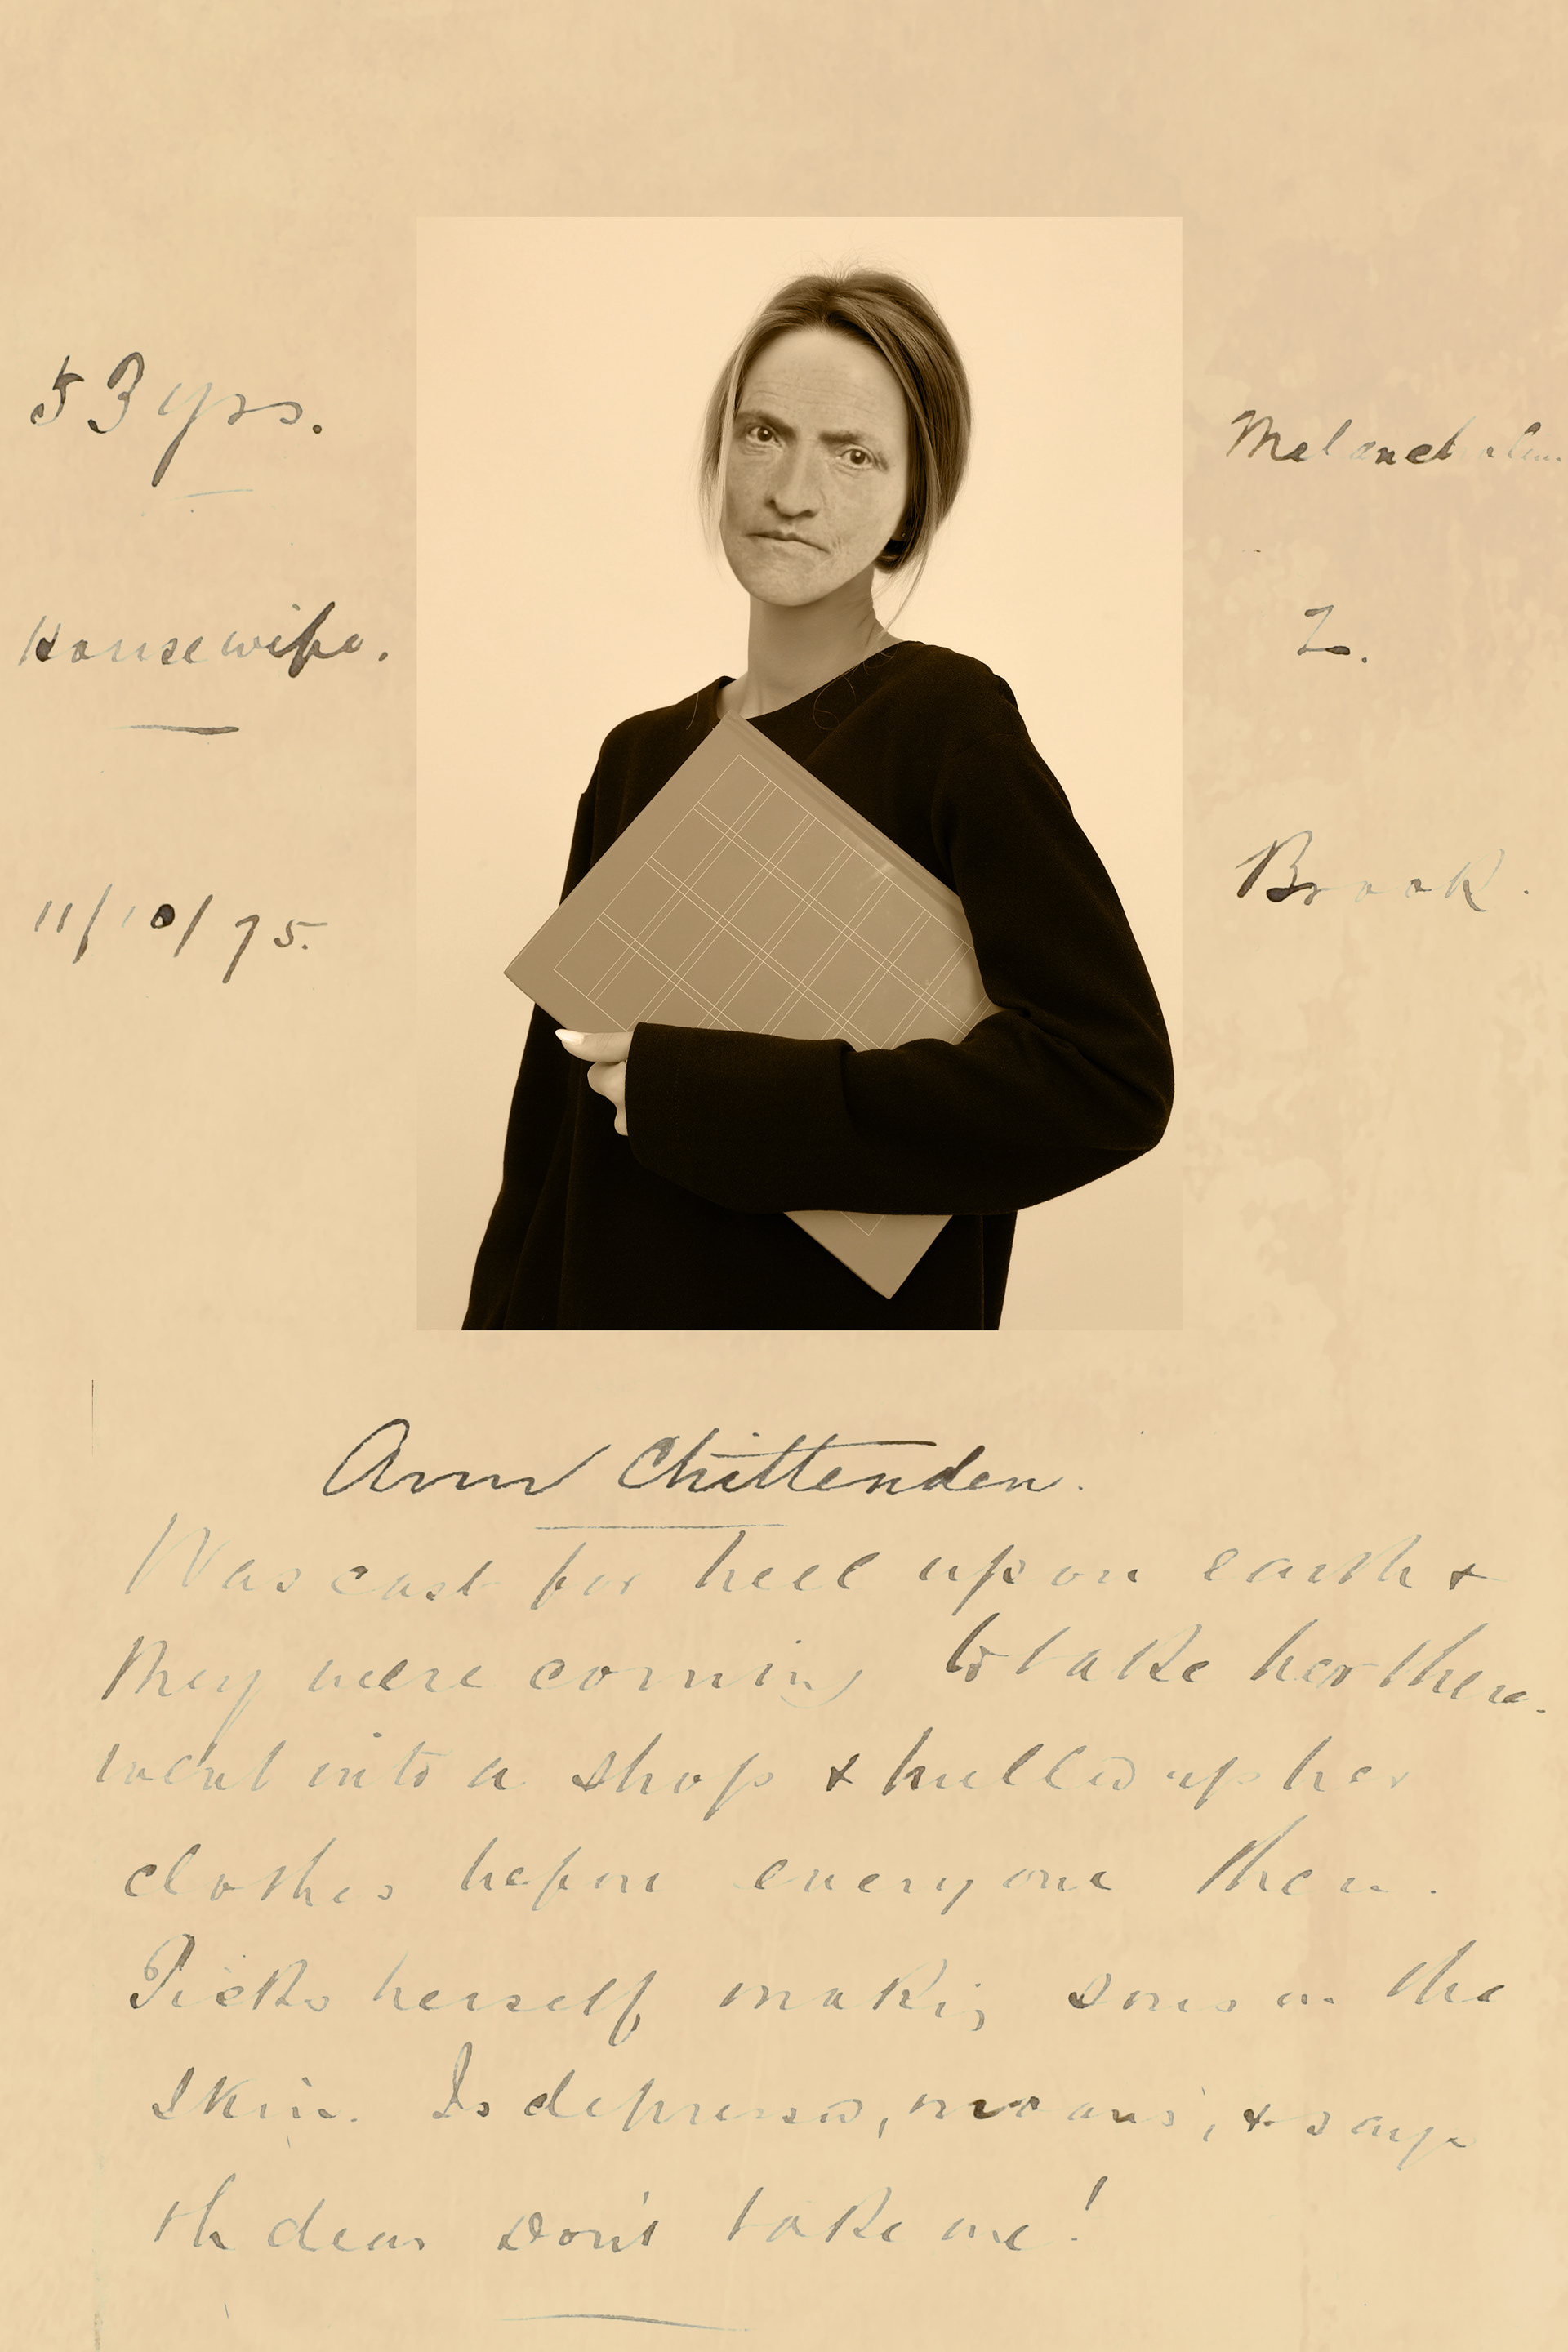 53 yrs.
Melanch
Housewife.
2.
Brook.
11/10/75.
Ann Chittenden.
Was cast for hell upon earth &
they were coming to take her there.
went into a shop & pulled up her
clothes before everyone there.
Picks herself making sores on the
skin. Is depressed, moans, & says
oh dear Don't take me!